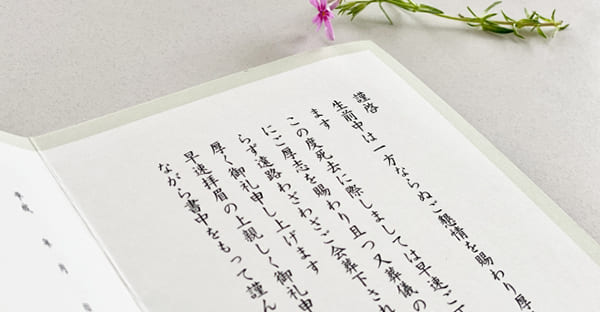 謹啓
生前中は一方ならぬご懇情を賜わり厚
ます
この度死去に際しましては早速ご
にご厚志を賜わり且つ又葬儀の
らず遠路わざわざご会葬下され
厚く御礼申し上げます
早速拝眉の上親しく御礼申
ながら書中をもって謹ん
年 月